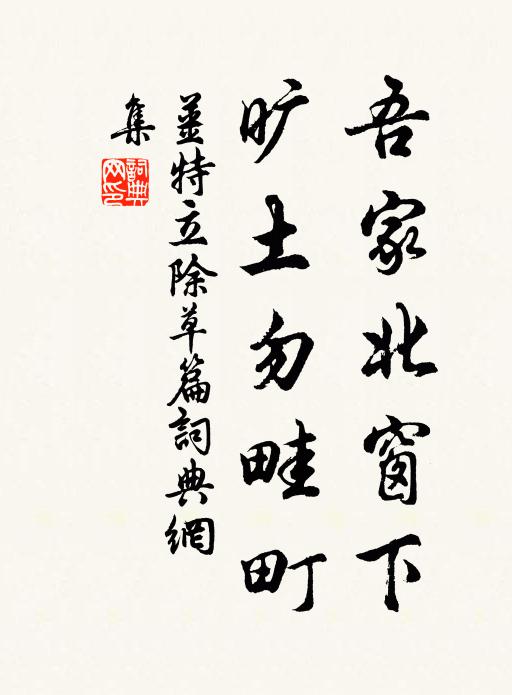 吾家北窗下
旷土勿畦町
薑特立除草篇詞典網
集
詞典网印